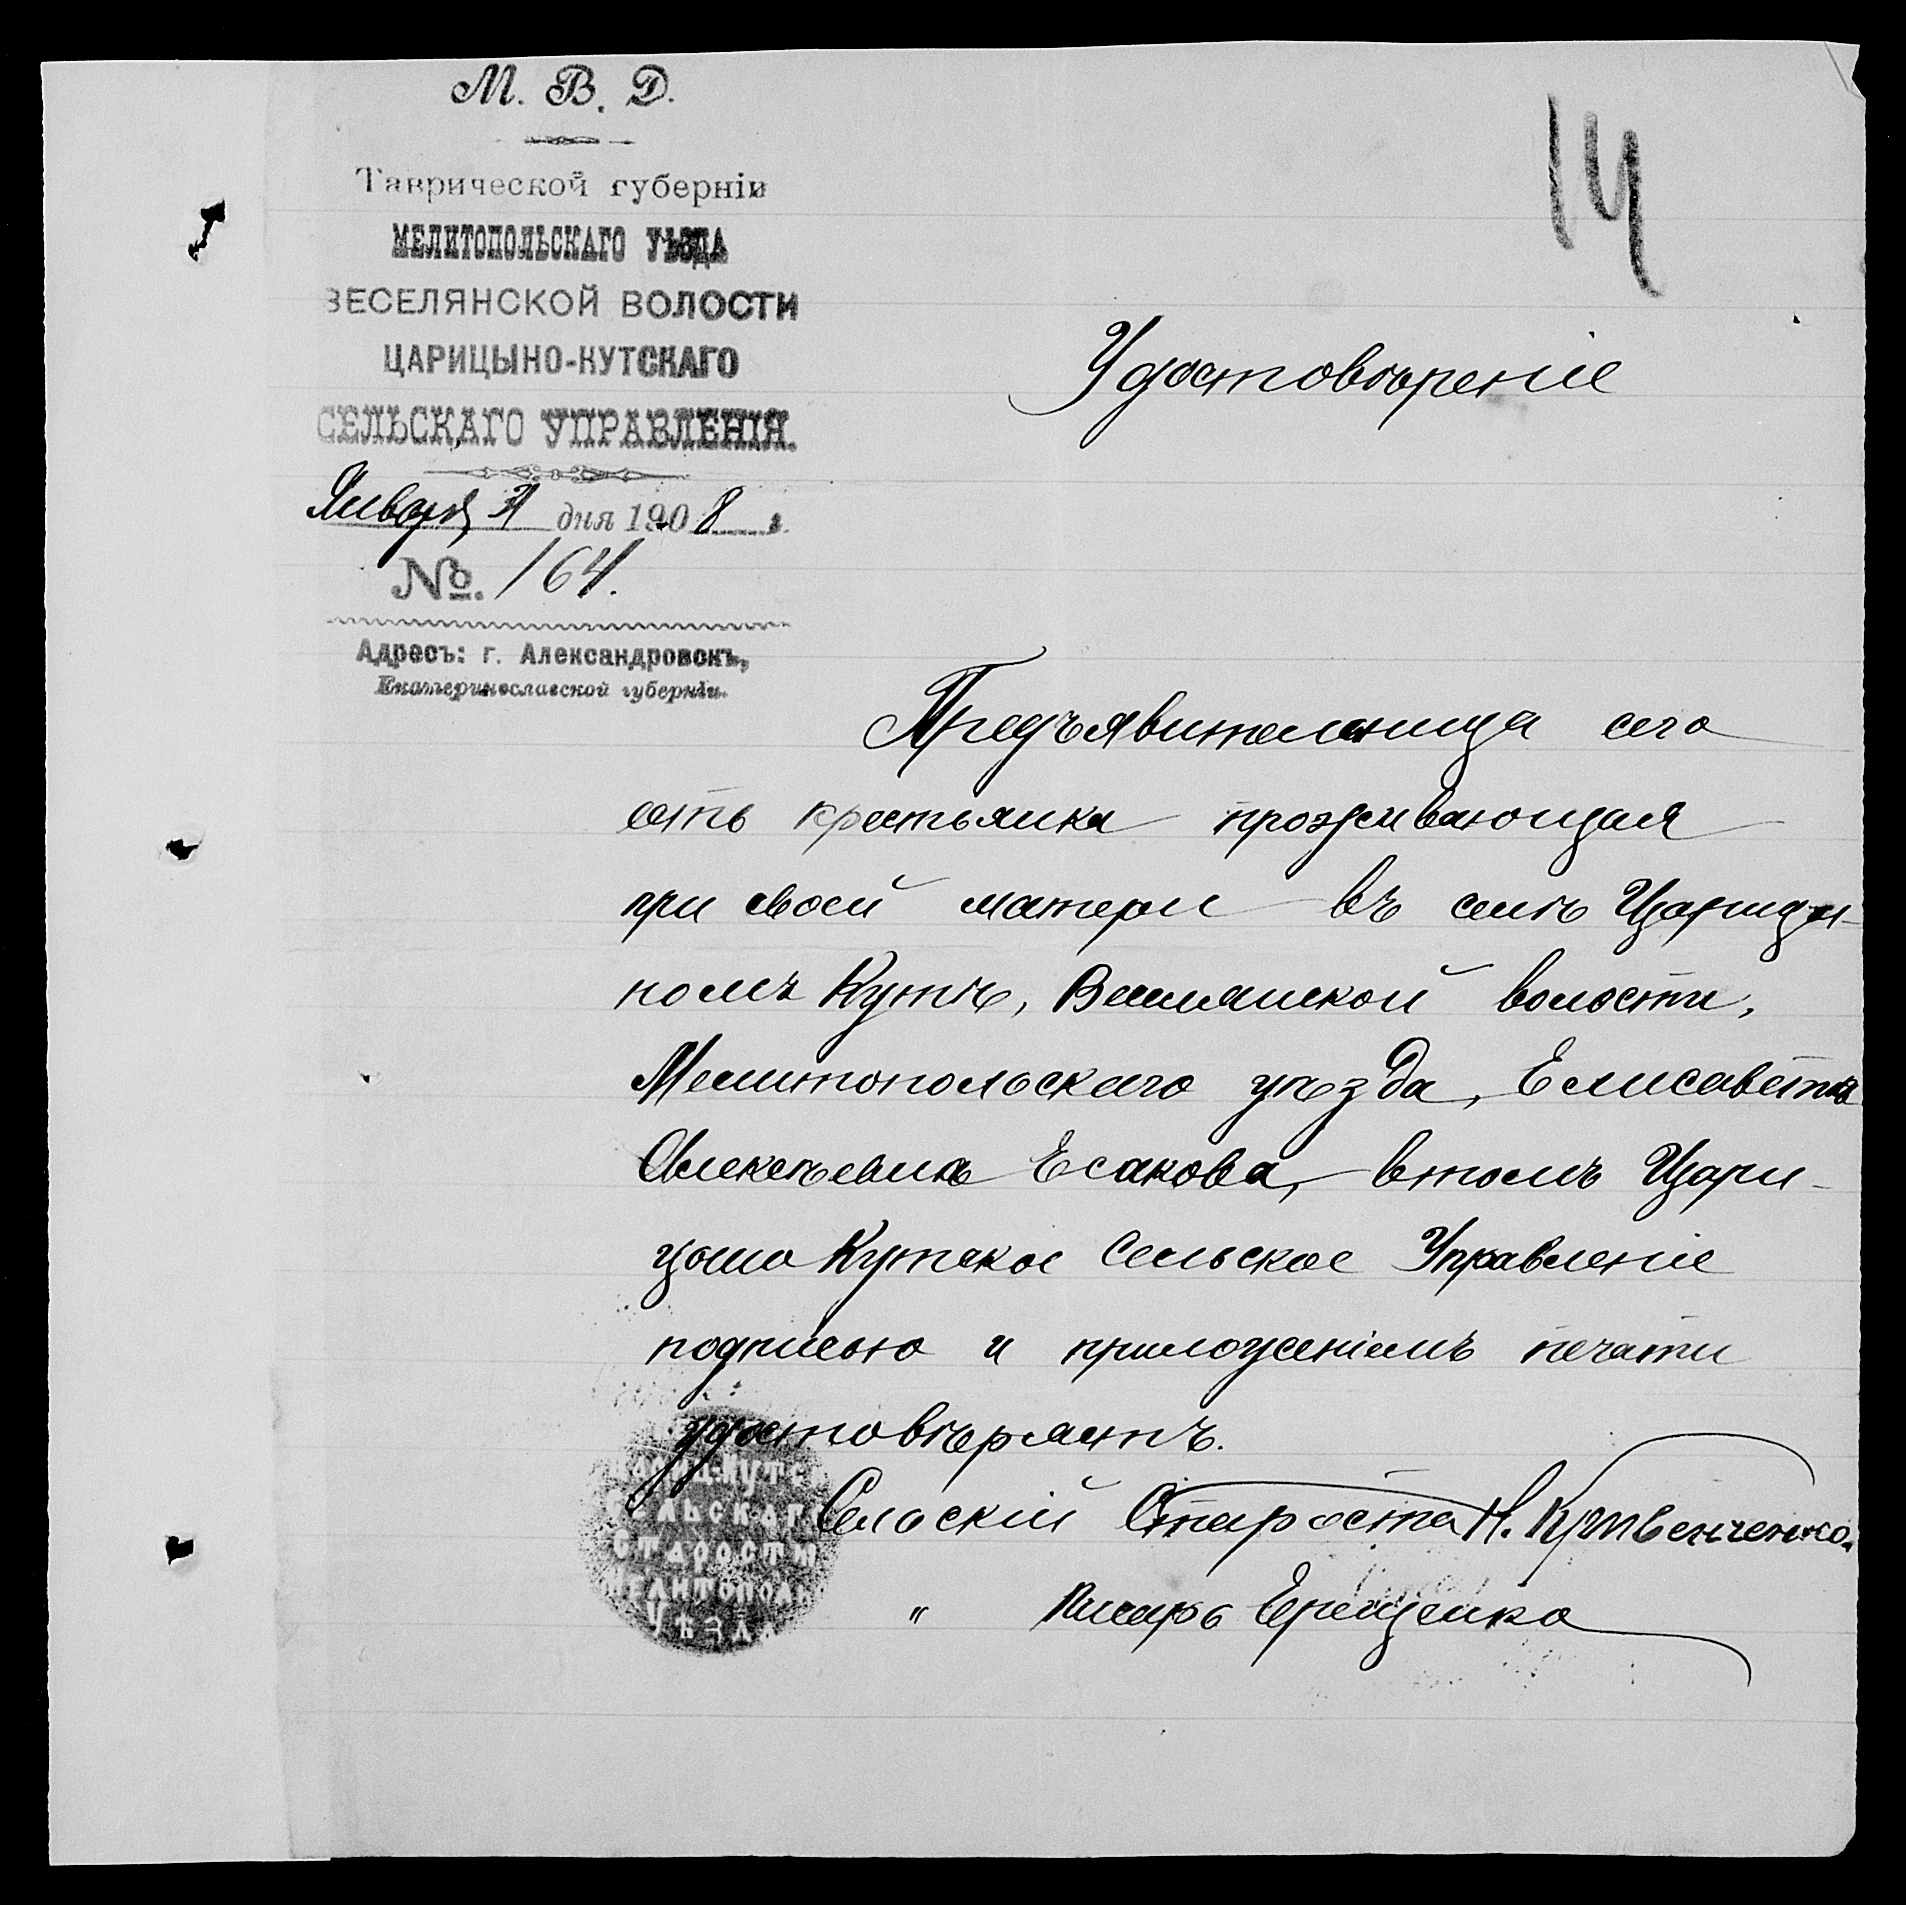 М. В. Д.
Таврической губерніи
МЕЛИТОПОЛЬСКАГО УѢЗДА
ВЕСЕЛЯНСКОЙ ВОЛОСТИ
ЦАРИЦЫНО-КУТСКАГО
СЕЛЬСКАГО УПРАВЛЕНІЯ.
Января 31 дня 1908 г.
№. 164.
Адресъ: г. Александровскъ,
Екатеринославской губерніи.
14
Удостовѣреніе
Предъявительница сего
есть крестьянка проживающая
при своей матери въ селѣ Царицы-
номъ Кутѣ, Веселянской волости,
Мелитопольскаго уѣзда, Елисавета
Алексѣевна Есакова, втомъ Цари-
цыно Кутское Сельское Управленіе
подписью и приложеніемъ печати
удостовѣряетъ.
Сельскій Староста Н. Кривенченко.
" Писарь Ерещенко
ЦАРИЦ-КУТСК
СЕЛЬСКАГО
СТАРОСТЫ
МЕЛИТОПОЛЬ
УѢЗДА